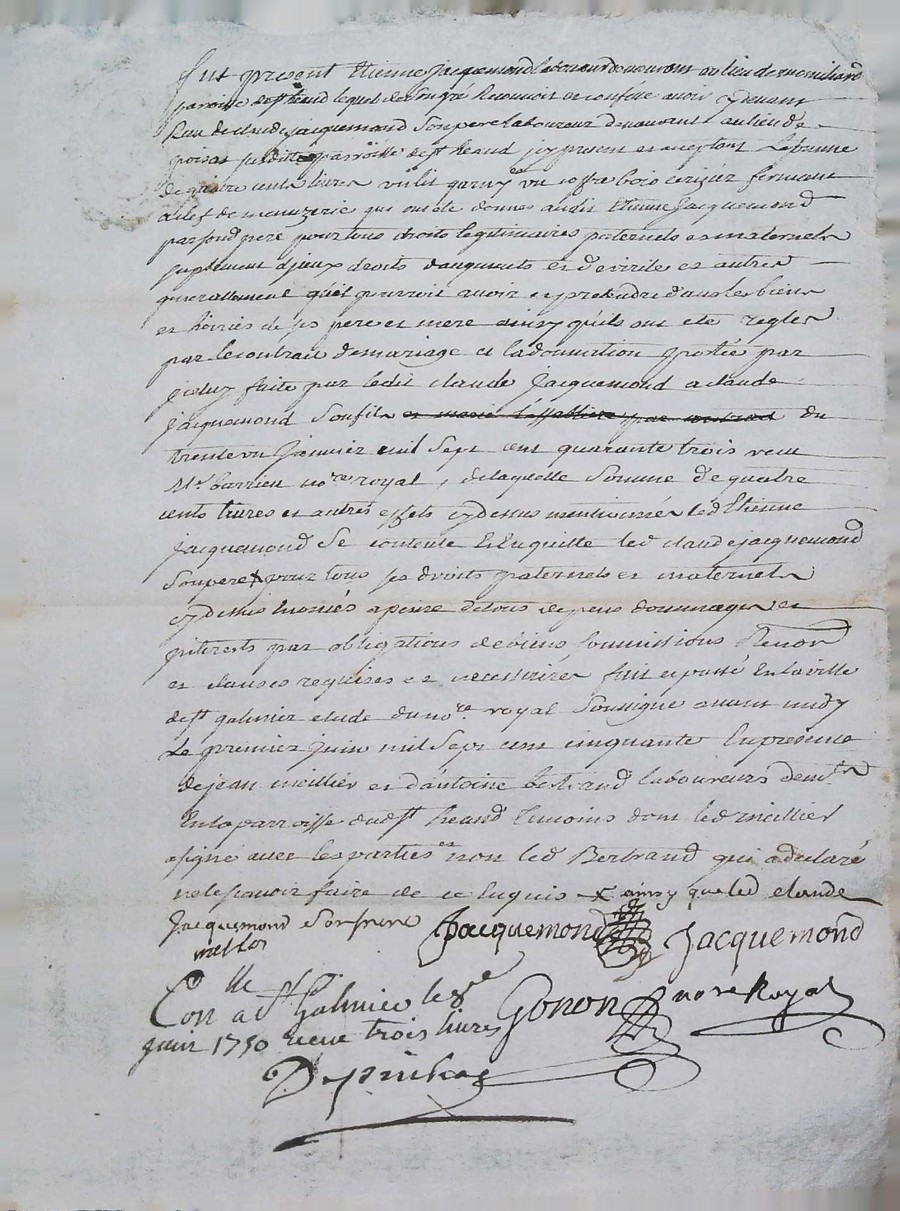 fut present Etienne Jacquemond laboureur demeurant au lieu de
parroisse de st heand lequel de son gré Reconnoit et confesse avoir cydevant
Receu de claude jacquemond son pere laboureur demeurant au lieu de
susditte parroisse de st heand icy present et acceptant La somme
de quatre cents livres un lit garny et un coffre bois cerizier fermant
a clef de menuzerie qui ont été donnés audit Etienne Jacquemond
par sond pere pour tous droits legitimaires paternels et maternels
suplement d'jceux droits daugments et de virile et autres
generallement qu'il pourroit avoir et pretendre dans les biens
et hoiries de ses pere et mere ainsy qu'ils ont eté reglés
par le contrat de mariage et la donnation portée par
jceluy faite par ledit claude Jacquemond a claude
Jacquemond son fils du
trente un Janvier mil Sept cent quarante trois receu
Me barrieu nore royal, de laquelle Somme de quatre
cents livres et autres effets cydessus mentionnés led Etienne
Jacquemond Se contente Et en quitte led claude jacquemond
Son pere x pour tous ses droits paternels et maternels
cydessus enoncés a peine de tous depens dommages et
jnterests par obligations de biens soumissions Renon
et clauses requises et necessaires fait et passé En la ville
de st galmier etude du nore royal Soussigné avant midy
Le premier juin mil Sept cent cinquante En presence
de jean meillier et d'antoine bertrand laboureurs demts
En la parroisse dud st heand temoins dont led meillier
a signé avec les parties et non led Bertrand qui a declaré
ne le scavoir faire de ce Enquis x ainsy que led claude
Jacquemond Son frere Jacquemond Jacquemond
Conlle a St Galmier le 8e Gonon nore Royal
juin 1750 receu trois livres